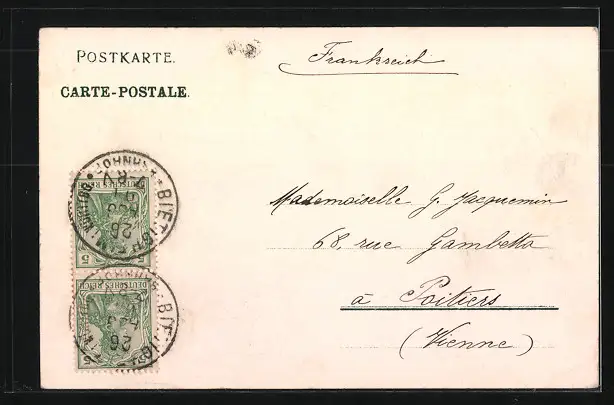 POSTKARTE.
CARTE-POSTALE.
Frankreich
Mademoiselle G. Jacquemin
68, rue Gambetta
à Poitiers
(Vienne)
DEUTSCHES REICH
5
DEUTSCHES REICH